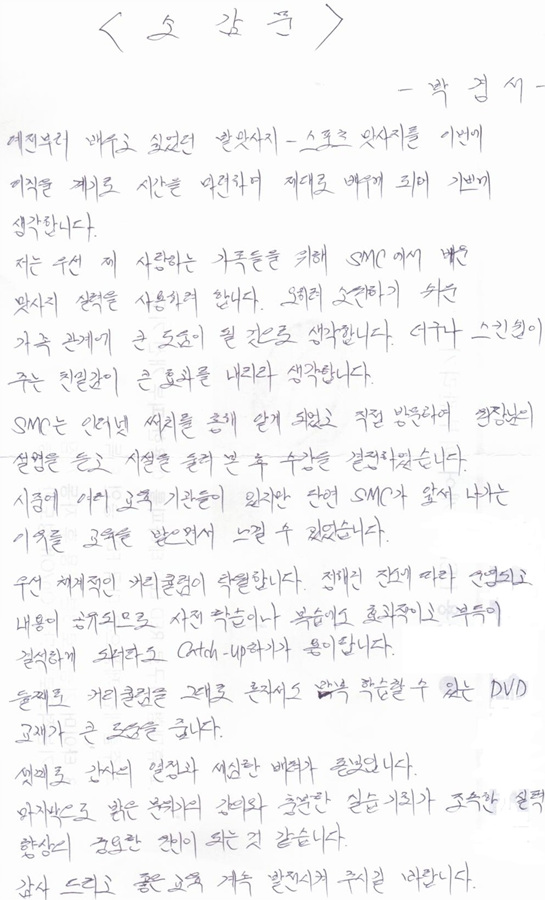 < 소 감 문 >
- 박 겸 서 -
예전부터 배우고 싶었던 발맛사지 - 스포츠 맛사지를 이번에
이직을 계기로 시간을 마련하여 제대로 배우게 되어 기쁘게
생각합니다.
저는 우선 제 사랑하는 가족들을 위해 SMC에서 배운
맛사지 실력을 사용하려 합니다. 오히려 소원하기 쉬운
가족 관계에 큰 도움이 될 것으로 생각합니다. 더구나 스킨쉽이
주는 친밀감이 큰 효과를 내리라 생각합니다.
SMC는 인터넷 써치를 통해 알게 되었고 직접 방문하여 원장님의
설명을 듣고 시설을 둘러 본 후 수강을 결정하였습니다.
시중에 여러 교육 기관들이 있지만 단연 SMC가 앞서 나가는
이유를 교육을 받으면서 느낄 수 있었습니다.
우선 체계적인 커리큘럼이 탁월합니다. 정해진 진도에 따라 진행되고
내용이 공유되므로 사전 학습이나 복습에도 효과적이고 부득이
결석하게 되더라도 Catch-up하기가 용이합니다.
둘째로 커리큘럼을 그대로 혼자서도 반복 학습할 수 있는 DVD
교재가 큰 도움을 줍니다.
셋째로 강사의 열정과 세심한 배려가 돋보입니다.
마지막으로 밝은 분위기의 강의와 충분한 실습 기회가 조속한 실력
향상의 중요한 요인이 되는 것 같습니다.
감사 드리고 좋은 교육 계속 발전시켜 주시길 바랍니다.